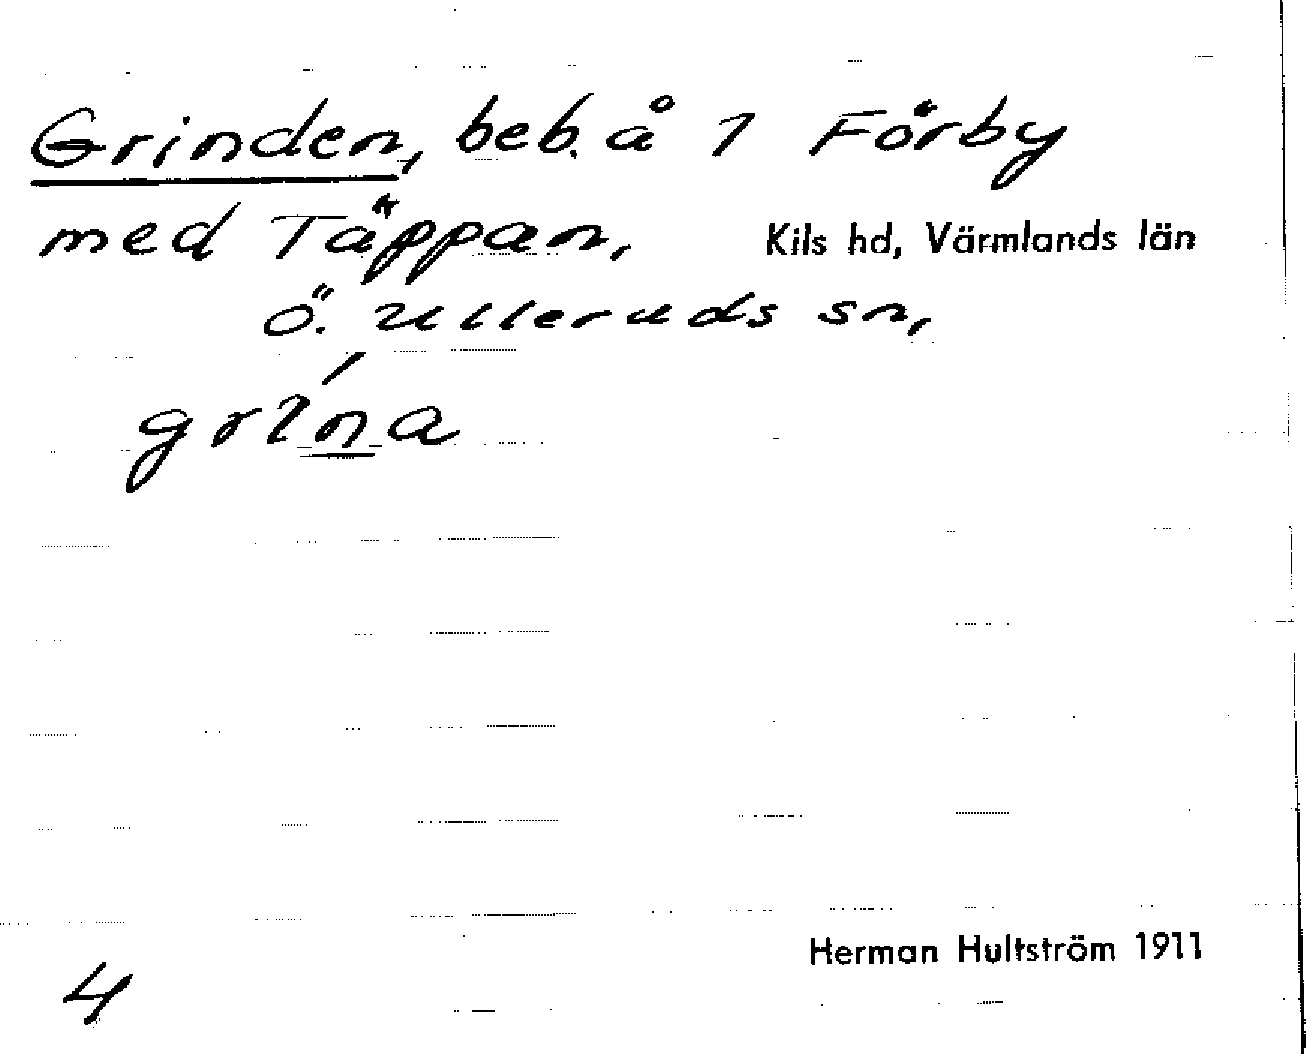 Grinden, beb. å 1 Förby
med Täppan, Kils hd, Värmlands län
Ö. Ulleruds sn,
grína
Herman Hultström 1911
4